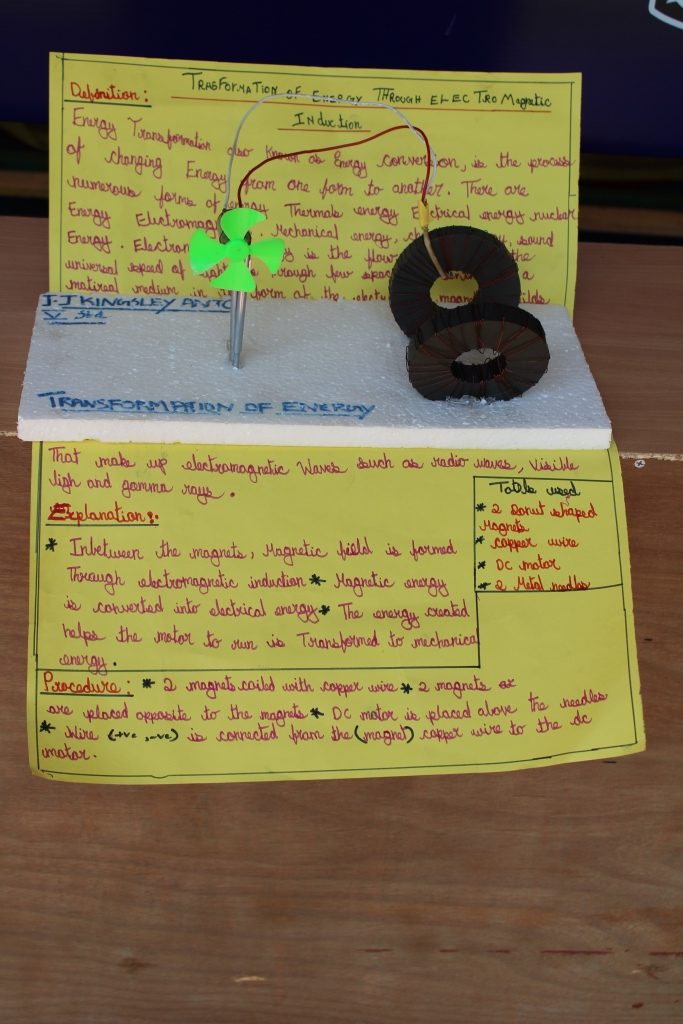 TRASFORMATION OF ENERGY THROUGH ELECTROMagnetic
INduction
Definition:
Energy Transformation also known as Energy conversion, is the process
of changing Energy from one form to another. There are
numerous forms of energy Thermals energy Electrical energy nuclear
Energy Electromag mechanical energy, sound
Energy. Electron is the flow the
universal speed of through few spac a
matireal medium in form
J.J KINGSLEY ANTO
V Std
TRANSFORMATION OF ENERGY
That make up electromagnetic Waves such as radio waves, Visible
ligh and gamma rays.
Explanation:
* Inbetween the magnets, Magnetic field is formed
Through electromagnetic induction * Magnetic energy
is converted into electrical energy * The energy created
helps the motor to run is Transformed to mechanical
energy.
Tools used
* 2 Donut shaped
Magnets
* copper wire
* DC motor
* 2 Metal needles
Procedure: * 2 magnets coiled with copper wire * 2 magnets
are placed opposite to the magnets * DC motor is placed above the needles
* Wire (+ve, -ve) is connected from the (magnet) copper wire to the dc
motor.